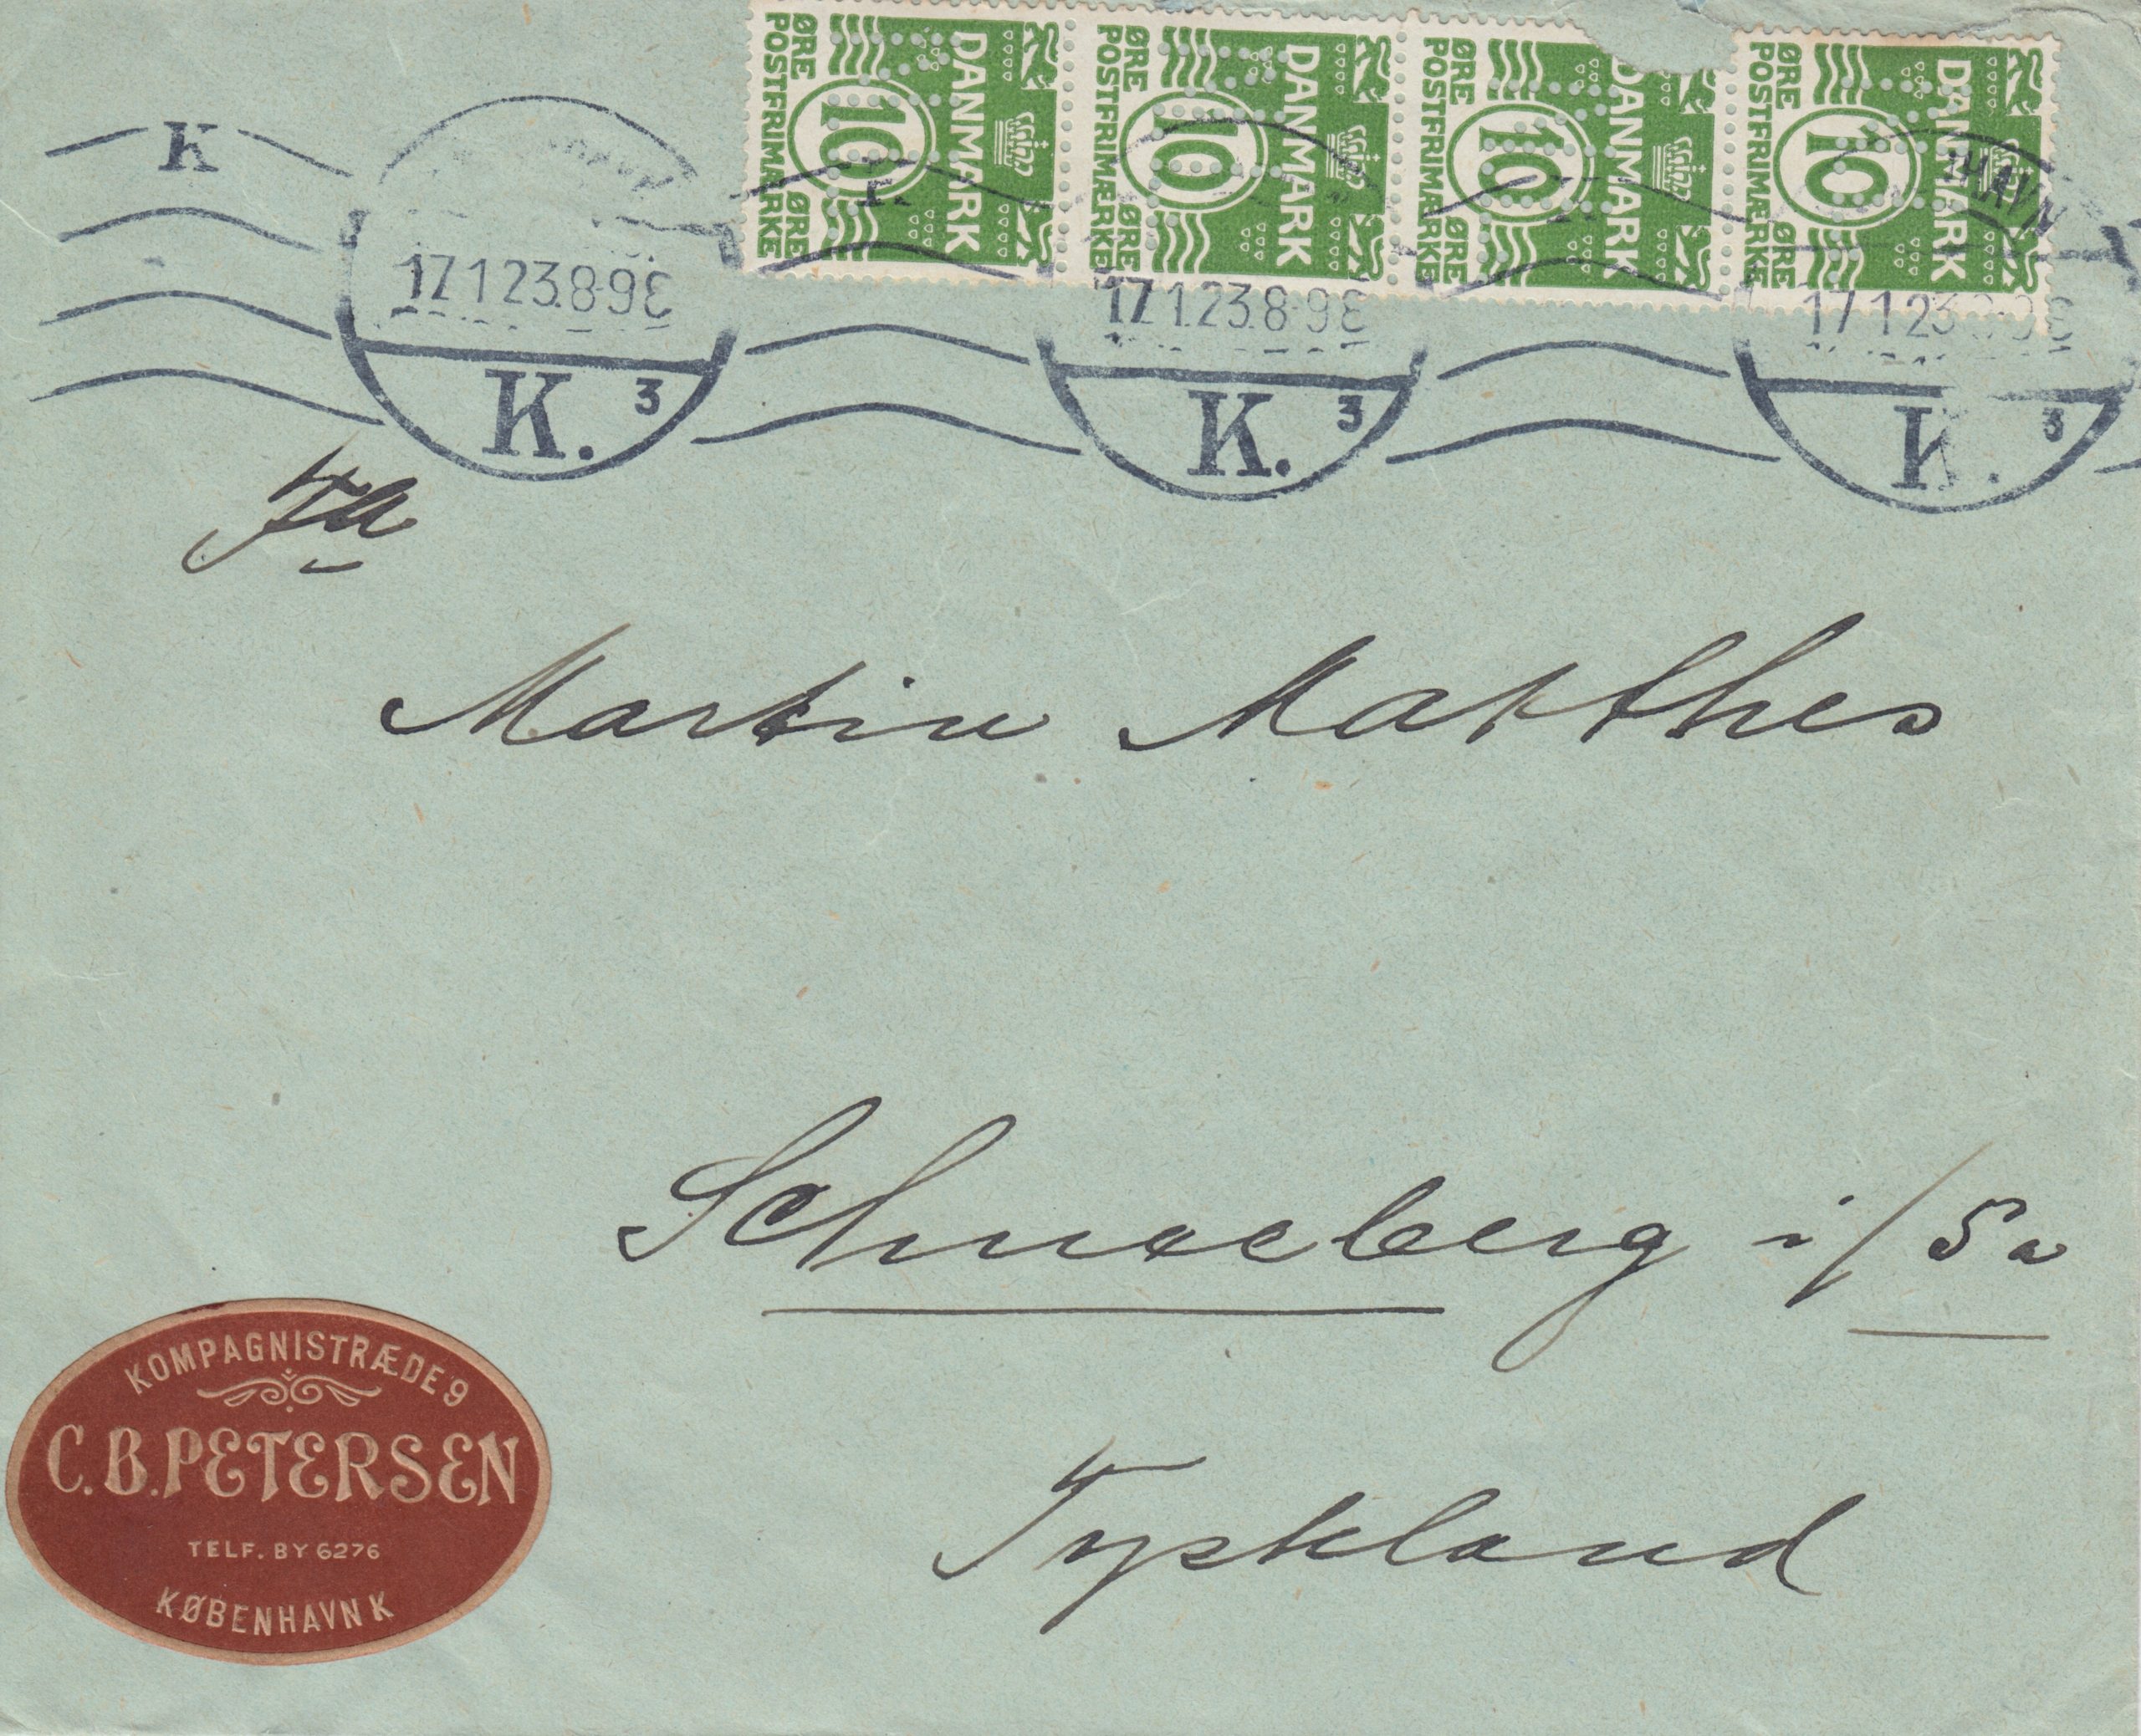 DANMARK 10 ØRE ØRE POSTFRIMÆRKE
DANMARK 10 ØRE ØRE POSTFRIMÆRKE
DANMARK 10 ØRE ØRE POSTFRIMÆRKE
DANMARK 10 ØRE ØRE POSTFRIMÆRKE
K
17.1.23.8-9E
K. 3
K
17.1.23.8-9E
K. 3
HAVN
17 1 23
K. 3
Fa
Martin Matthes
Schneeberg i/Sa
Tyskland
KOMPAGNISTRÆDE 9
C.B.PETERSEN
TELF. BY 6276
KØBENHAVN K